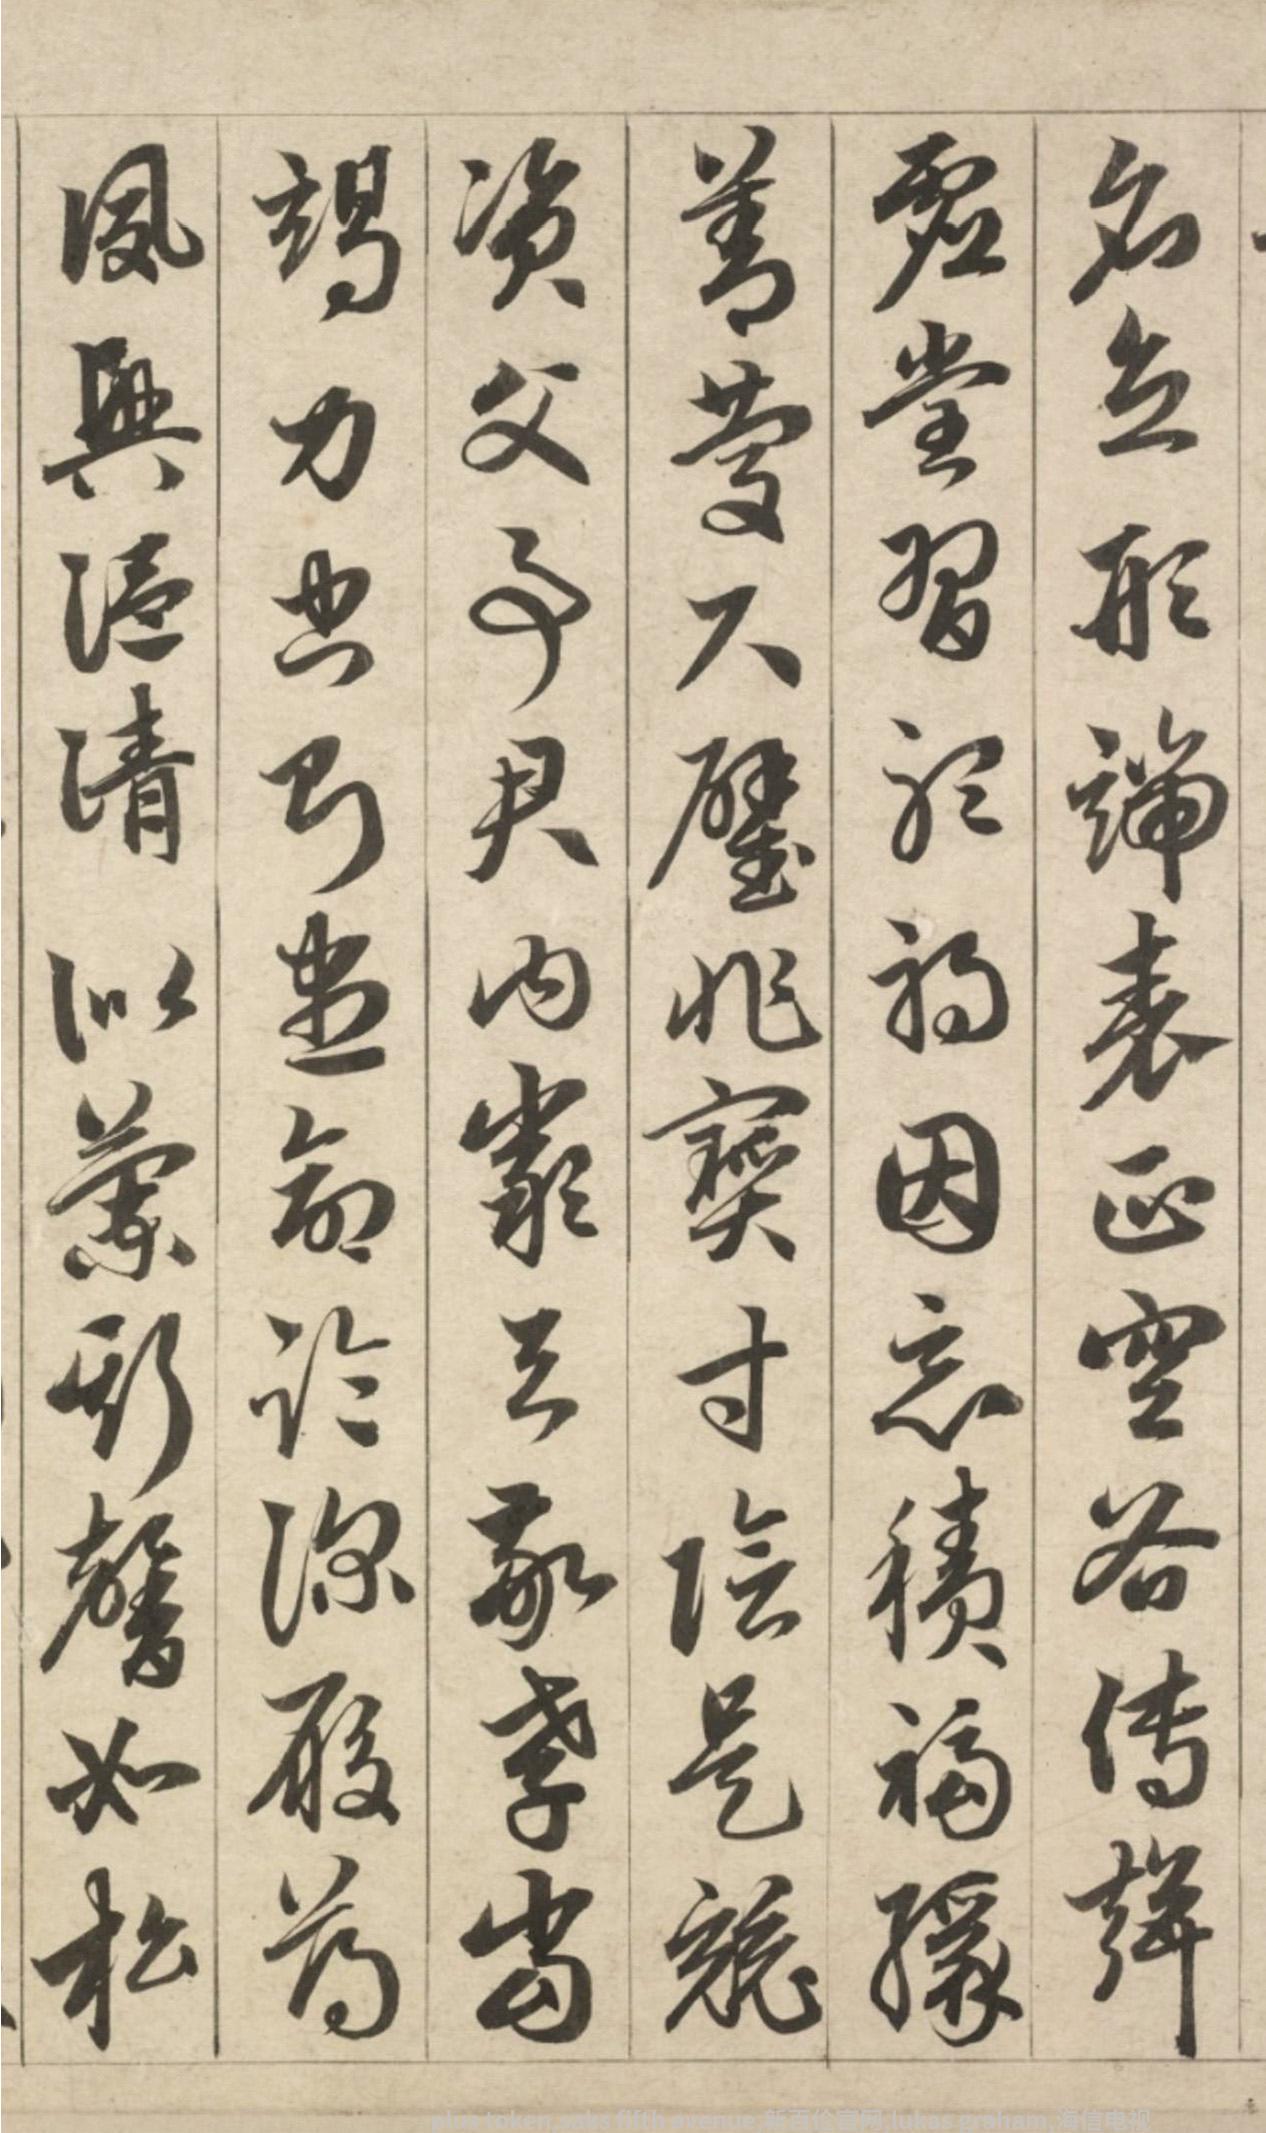 名立形端表正空谷傳聲
虛堂習聽禍因惡積福緣
善慶尺璧非寶寸陰是競
資父事君曰嚴與敬孝當
竭力忠則盡命臨深履薄
夙興溫清似蘭斯馨如松
plus token,saks fifth avenue,新百伦官网,lukas graham,海信电视